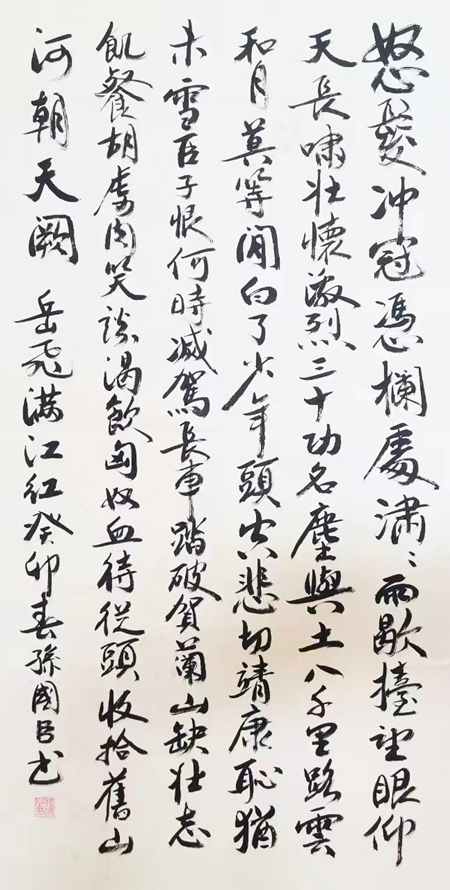 怒髮冲冠憑欄處瀟〻雨歇擡望眼仰
天長嘯壯懷激烈三十功名塵與土八千里路雲
和月莫等閒白了少年頭空悲切靖康恥猶
未雪臣子恨何時滅駕長車踏破賀蘭山缺壯志
飢餐胡虜肉笑談渴飲匈奴血待從頭收拾舊山
河朝天闕 岳飛滿江紅癸卯春孫國书